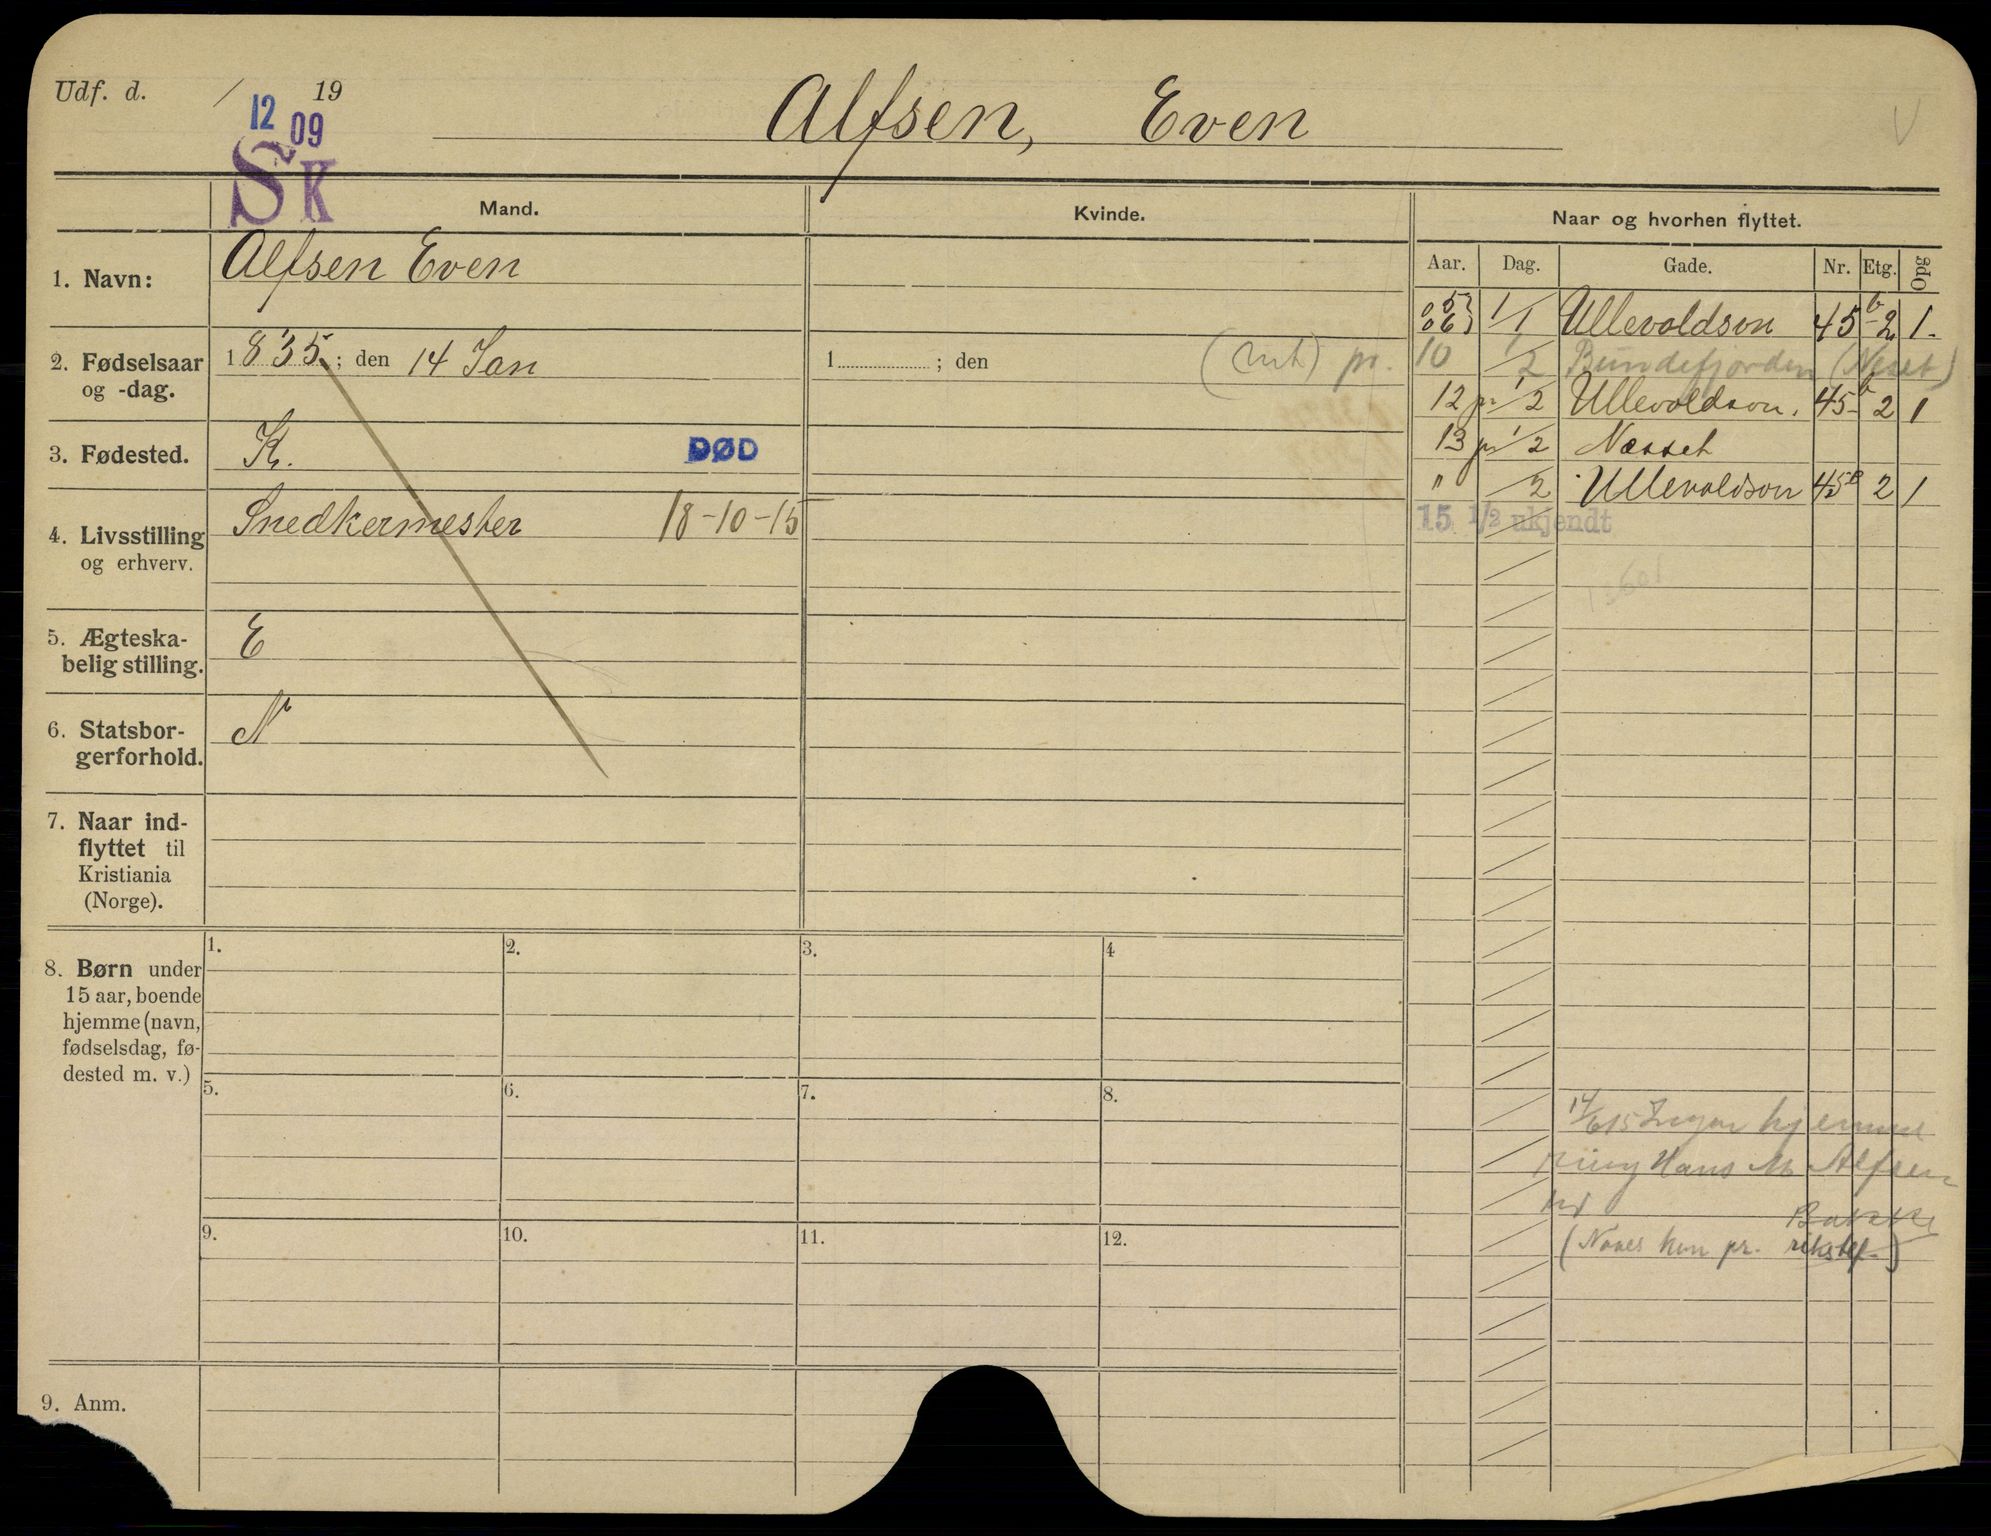 Udf. d. / 19
12 09
SK
Alfsen, Even
V
Mand.
Kvinde.
Naar og hvorhen flyttet.
Aar. Dag. Gade. Nr. Etg. Opg
1. Navn: Alfsen Even
2. Fødselsaar og -dag. 1835; den 14 Jan
1 ; den
3. Fødested. K. DØD
4. Livsstilling og erhverv. Snedkermester 18-10-15
5. Ægteska-
belig stilling. E
6. Statsbor-
gerforhold. N
7. Naar ind-
flyttet til
Kristiania
(Norge).
05 06 1/1 Ullevoldsvn 45 b 2 1.
pr. 10 /2 Bundefjorden (Neset)
12 pr 1/2 Ullevoldsvn. 45 b 2 1
13 pr 1/2 Næsset
" /2 Ullevoldsvn 45 B 2 1
15 1/2 ukjendt
8. Børn under
15 aar, boende
hjemme (navn,
fødselsdag, fø-
dested m. v.)
1. 2. 3. 4
5. 6. 7. 8.
9. 10. 11. 12.
14/6 15 Ingen hjemme
ring Hans M Alfsen
Bakke
(Naaes kun pr. rikstlf.)
9. Anm.